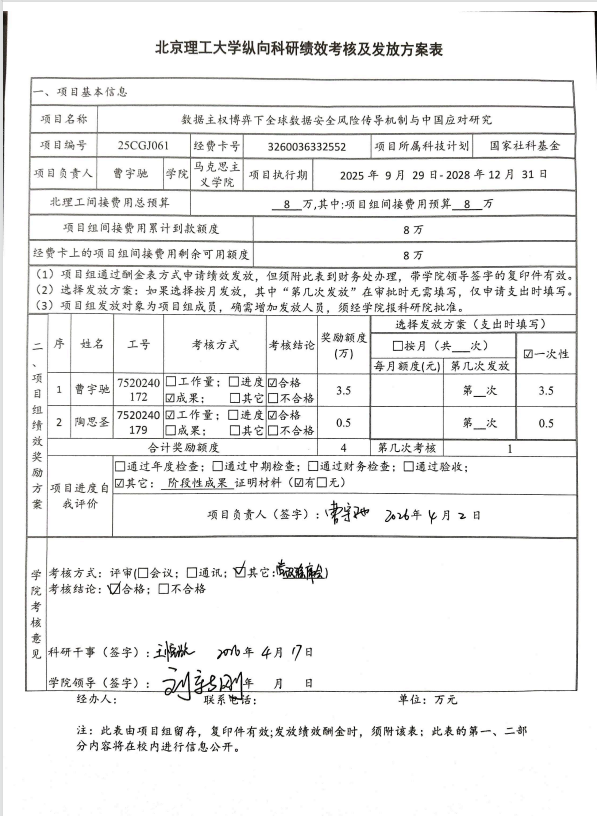 北京理工大学纵向科研绩效考核及发放方案表
一、项目基本信息
项目名称 数据主权博弈下全球数据安全风险传导机制与中国应对研究
项目编号 25CGJ061 经费卡号 3260036332552 项目所属科技计划 国家社科基金
项目负责人 曹宇驰 学院 马克思主义学院 项目执行期 2025 年 9 月 29 日- 2028 年 12 月 31 日
北理工间接费用总预算 8 万,其中:项目组间接费用预算 8 万
项目组间接费用累计到款额度 8 万
经费卡上的项目组间接费用剩余可用额度 8 万
（1）项目组通过酬金表方式申请绩效发放，但须附此表到财务处办理，带学院领导签字的复印件有效。
（2）选择发放方案：如果选择按月发放，其中“第几次发放”在审批时无需填写，仅申请支出时填写。
（3）项目组发放对象为项目组成员，确需增加发放人员，须经学院报科研院批准。
二、项目组绩效奖励方案
序 姓名 工号 考核方式 考核结论 奖励额度(万) 选择发放方案（支出时填写）
☐按月（共__次） ☑一次性
每月额度(元) 第几次发放
1 曹宇驰 7520240172 ☐工作量；☐进度 ☑成果； ☐其它 ☑合格 ☐不合格 3.5 第__次 3.5
2 陶思圣 7520240179 ☑工作量；☐进度 ☐成果； ☐其它 ☑合格 ☐不合格 0.5 第__次 0.5
合计奖励额度 4 第几次考核 1
项目进度自我评价
☐通过年度检查；☐通过中期检查；☐通过财务检查；☐通过验收；
☑其它： 阶段性成果 证明材料（☑有☐无）
项目负责人（签字）：曹宇驰 2026 年 4 月 2 日
学院考核意见
考核方式：评审(☐会议；☐通讯；☑其它:)
考核结论：☑合格；☐不合格
科研干事（签字）： 年 4 月 17 日
学院领导（签字）： 刘新刚 年 月 日
经办人： 联系电话： 单位：万元
注：此表由项目组留存，复印件有效;发放绩效酬金时，须附该表；此表的第一、二部
分内容将在校内进行信息公开。